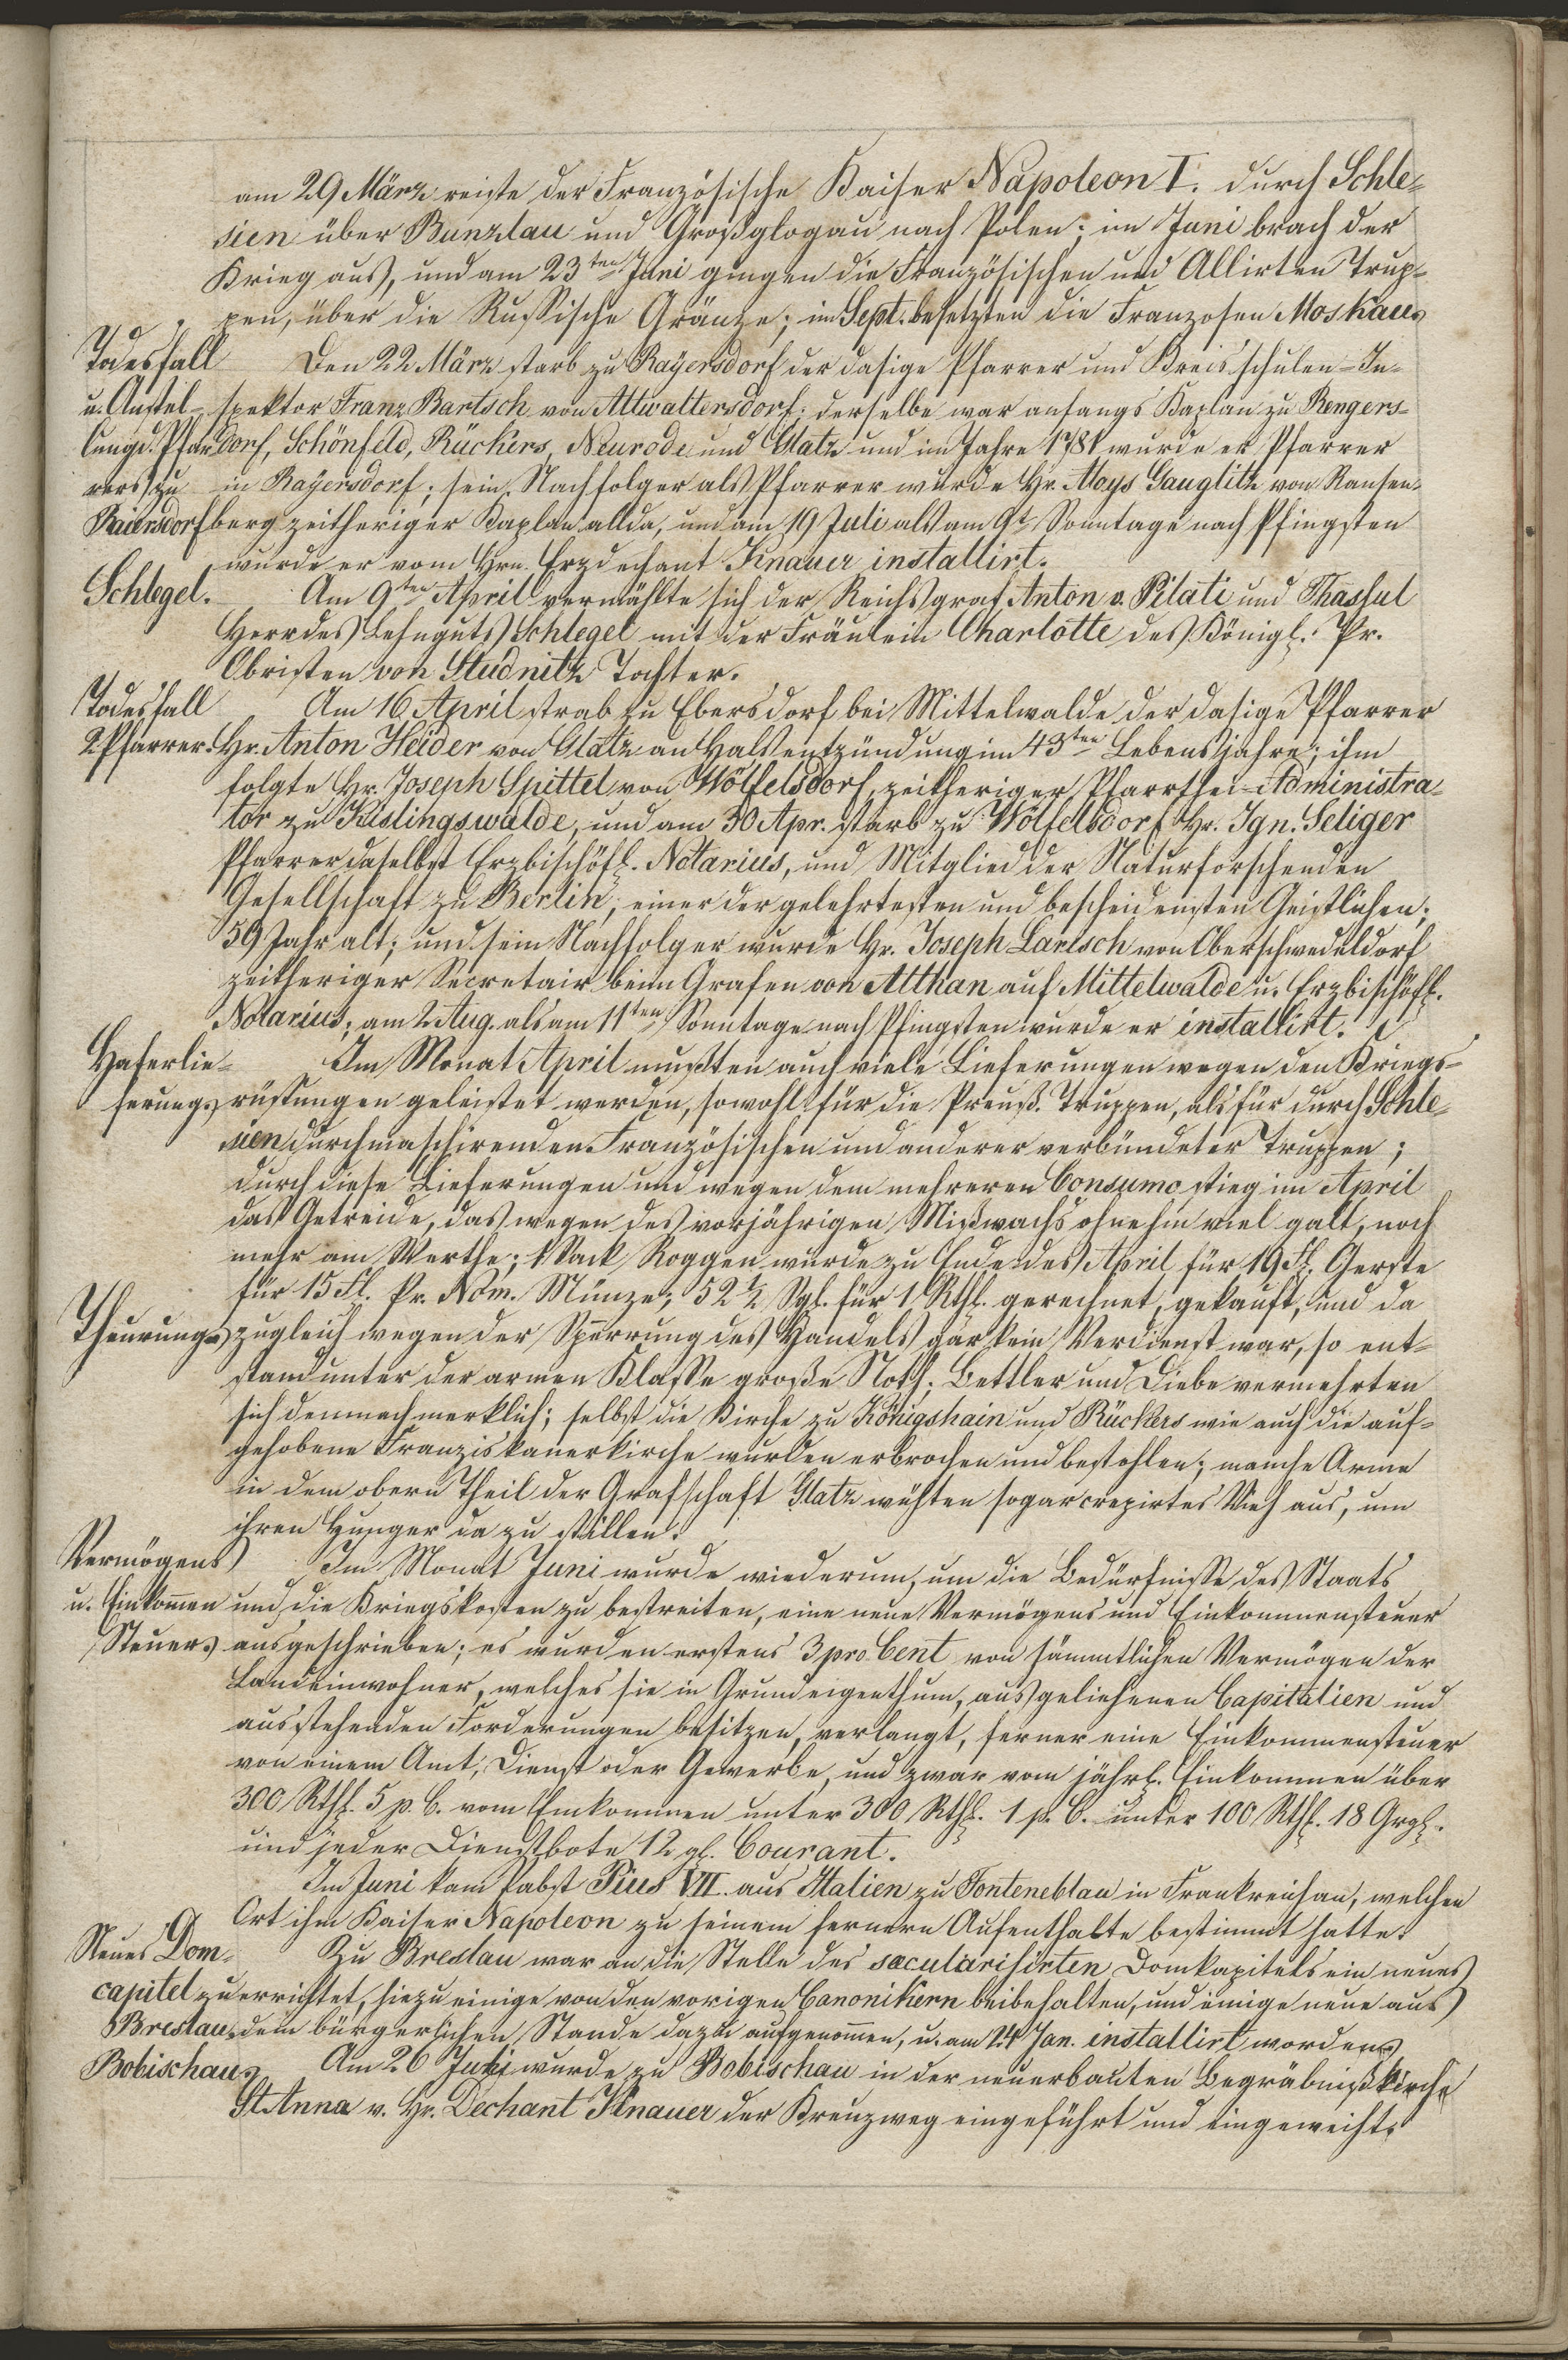 am 29 März reiste der Französische Kaiser Napoleon I. durch Schle-
sien über Bunzlau und Großglogau nach Polen; im Juni brach der
Krieg aus, und am 23ten Juni gingen die Französischen und Allirten Trup-
pen, über die Russische Gränze; im Sept. besetzten die Franzosen Moskau.
Todesfall Den 22 März starb zu Rayersdorf der dasige Pfarrer und Kreisschulen-In-
u. Anstel- spektor Franz Bartsch von Altwaltersdorf; derselbe war anfangs Kaplan zu Rengers-
lung d. Pfar dorf, Schönfeld, Rückers, Neurode und Glatz und im Jahre 1781 wurde er Pfarrer
rers zu in Rayersdorf; sein Nachfolger als Pfarrer wurde Hr. Aloys Gauglitz von Ransen-
Raiersdorf berg zeitheriger Kaplan allda, und am 19 Juli als am 9t Sonntage nach Pfingsten
wurde er vom Hrn. Erzdechant Knauer installirt.
Schlegel. Am 9ten April vermählte sich der Reichsgraf Anton v. Pilati und Thassul
Herr des Lehnguts Schlegel mit der Fräulein Charlotte des Königl. Pr.
Obristen von Studnitz Tochter.
Todesfall Am 16 April strab zu Ebersdorf bei Mittelwalde der dasige Pfarrer
2 Pfarrer. Hr. Anton Heider von Glatz an Halsentzündung im 43ten Lebensjahre; ihm
folgte Hr. Joseph Spittel von Wölfelsdorf, zeitheriger Pfarrthei-Administra-
tor zu Kislingswalde, und am 30 Apr. starb zu Wölfelsdorf Hr. Ign. Seliger
Pfarrer daselbst Erzbischöfl. Notarius, und Mitglied der Naturforschenden
Gesellschaft zu Berlin; einer der gelehrtesten und bescheidensten Geistlichen;
59 Jahr alt; und sein Nachfolger wurde Hr. Joseph Larisch von Oberschwedeldorf
zeitheriger Secretair beim Grafen von Althan auf Mittelwalde u. Erzbischöfl.
Notarius; am 2 Aug. als am 11ten Sonntage nach Pfingsten wurde er installirt.
Haferlie- Im Monat April mußten auch viele Lieferungen wegen den Kriegs-
ferung. rüstungen geleistet werden, sowohl für die Preuß. Truppen, als für durch Schle-
sien durchmaschirenden Französischen und anderer verbündeter Truppen;
durch diese Lieferungen und wegen dem mehreren Consumo stieg im April
das Getreide, das wegen des vorjährigen Mißwachs ohnehin viel galt, noch
mehr am Werthe; 1 Sack Roggen wurde zu Ende des April für 19 Fl. Gerste
für 15 Fl. Pr. Nom. Münze; 52 1/2 Sgl. für 1 Rthl. gerechnet, gekauft, und da
Theurung. zugleich wegen der Sperrung des Handels gar kein Verdienst war, so ent-
stand unter der armen Klasse große Noth; Bettler und Diebe vermehrten
sich demnach merklich; selbst die Kirche zu Königshain und Rückers wie auch die auf-
gehobene Franziskanerkirche wurden erbrochen und bestohlen; manche Arme
in dem obern Theil der Grafschaft Glatz wühten sogar crepirtes Vieh aus, um
ihren Hunger da zu stillen.
Vermögens Im Monat Juni wurde wiederum, um die Bedürfnisse des Staats
u. Einkomen und die Kriegskosten zu bestreiten, eine neue Vermögens und Einkommensteuer
Steuer. ausgeschrieben; es wurden erstens 3 pro Cent von sämmtlichen Vermögen der
Landeinwohner, welches sie in Grundeigenthum, ausgeliehenen Capitalien und
ausstehenden Forderungen besitzen, verlangt, ferner eine Einkommensteuer
von einem Amt, Dienst oder Gewerbe, und zwar vom jährl. Einkommen über
300 Rthl. 5 p. C. vom Einkommen unter 300 Rthl. 1 p. C. unter 100 Rthl. 18 Grgl.
und jeder Dienstbote 12 gl. Courant.
Im Juni kam Pabst Pius VII. aus Italien zu Fonteneblau in Frankreich an, welchen
Ort ihm Kaiser Napoleon zu seinem fernern Aufenthalte bestimmt hatte.
Neues Dom- Zu Breslau war an die Stelle des sæcularisirten Domkapitels ein neues
capitel zu errichtet, hiezu einige von den vorigen Canonikern beibehalten, und einige neue aus
Breslau. dem bürgerlichen Stande dazu aufgenomen, u. am 14 Jan. installirt worden.
Bobischau. Am 26 Juli wurde zu Bobischau in der neuerbauten Begräbnißkirche
St Anna v. Hr. Dechant Knauer der Kreuzweg eingeführt und eingeweiht.